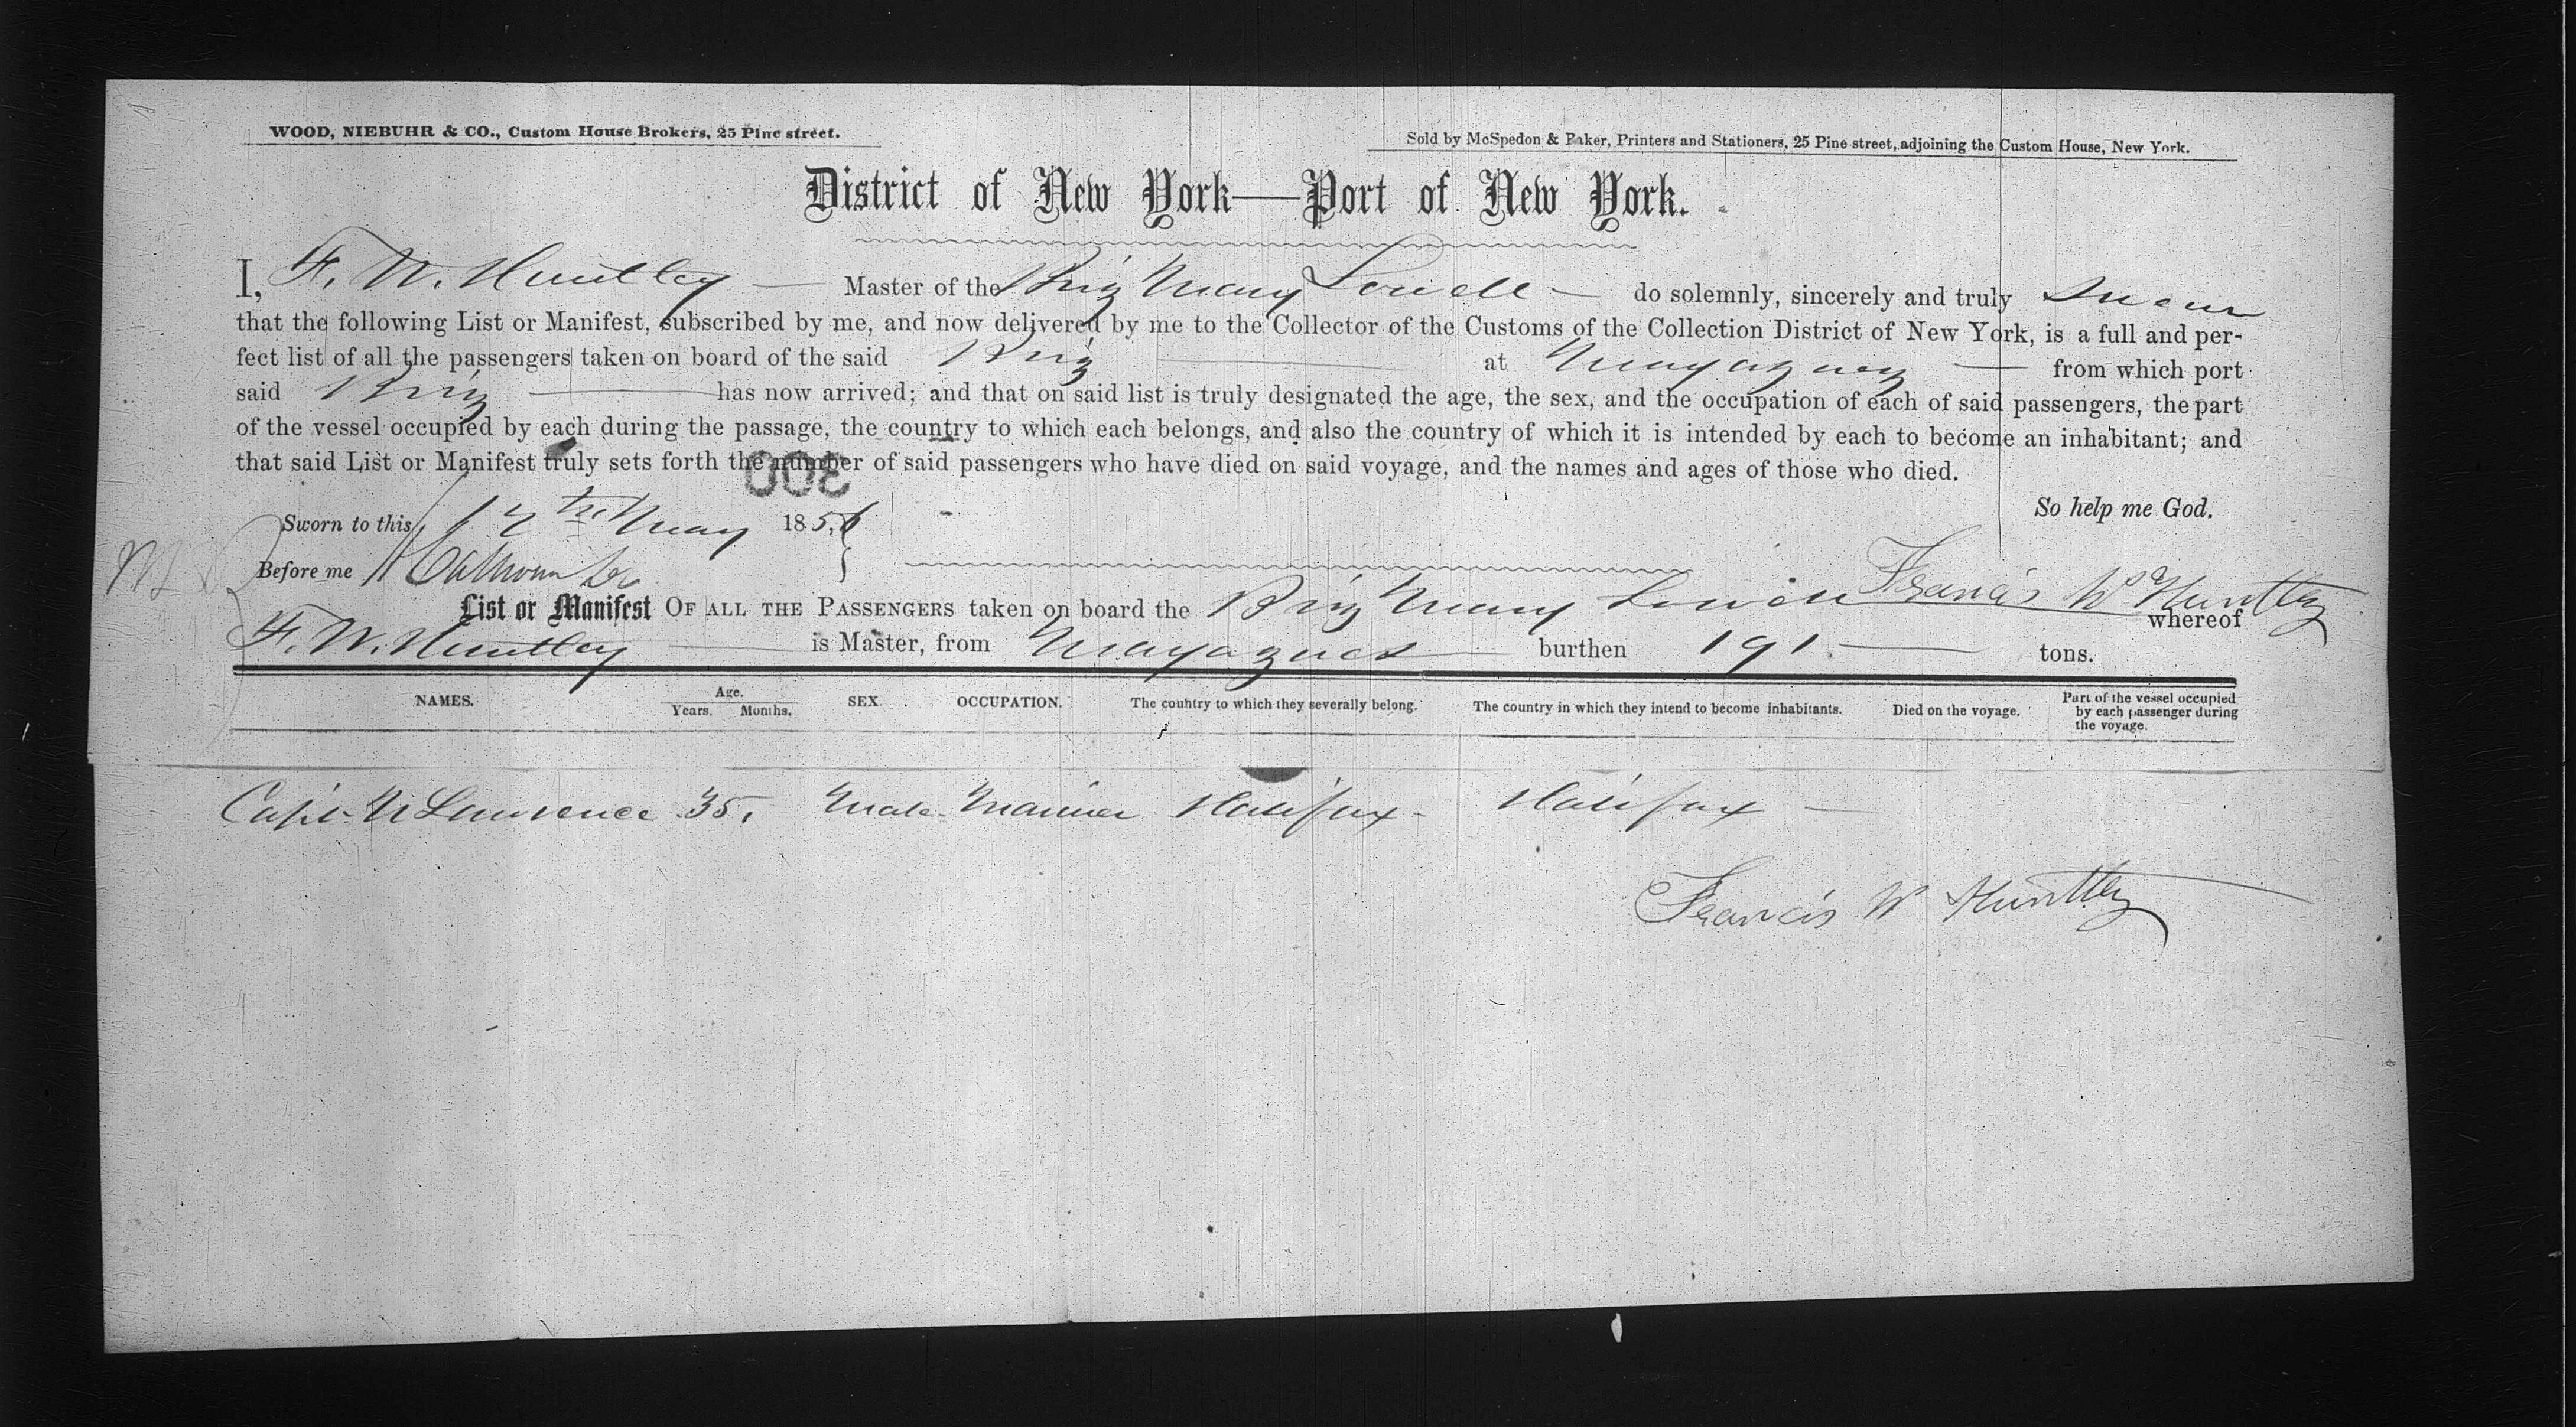 WOOD, NIEBUHR & CO., Custom House Brokers, 25 Pine street.
Sold by McSpedon & Baker, Printers and Stationers, 25 Pine street, adjoining the Custom House, New York.
District of New York—Port of New York.
I, F. W. Huntley — Master of the Brig Mary Lowell — do solemnly, sincerely and truly swear
that the following List or Manifest, subscribed by me, and now delivered by me to the Collector of the Customs of the Collection District of New York, is a full and per-
fect list of all the passengers taken on board of the said Brig at Mayaguez — from which port
said Brig has now arrived; and that on said list is truly designated the age, the sex, and the occupation of each of said passengers, the part
of the vessel occupied by each during the passage, the country to which each belongs, and also the country of which it is intended by each to become an inhabitant; and
that said List or Manifest truly sets forth the number of said passengers who have died on said voyage, and the names and ages of those who died.
300
So help me God.
Sworn to this 17th May 1856
Before me Calhoun
Francis W Huntley
List or Manifest OF ALL THE PASSENGERS taken on board the Brig Mary Lowell whereof
F. W. Huntley is Master, from Mayagues burthen 191 tons.
NAMES. Age. Years. Months. SEX. OCCUPATION. The country to which they severally belong. The country in which they intend to become inhabitants. Died on the voyage. Part of the vessel occupied by each passenger during the voyage.
Capt. N Lawrence 35. Male Mariner Halifax - Halifax —
Francis W Huntley